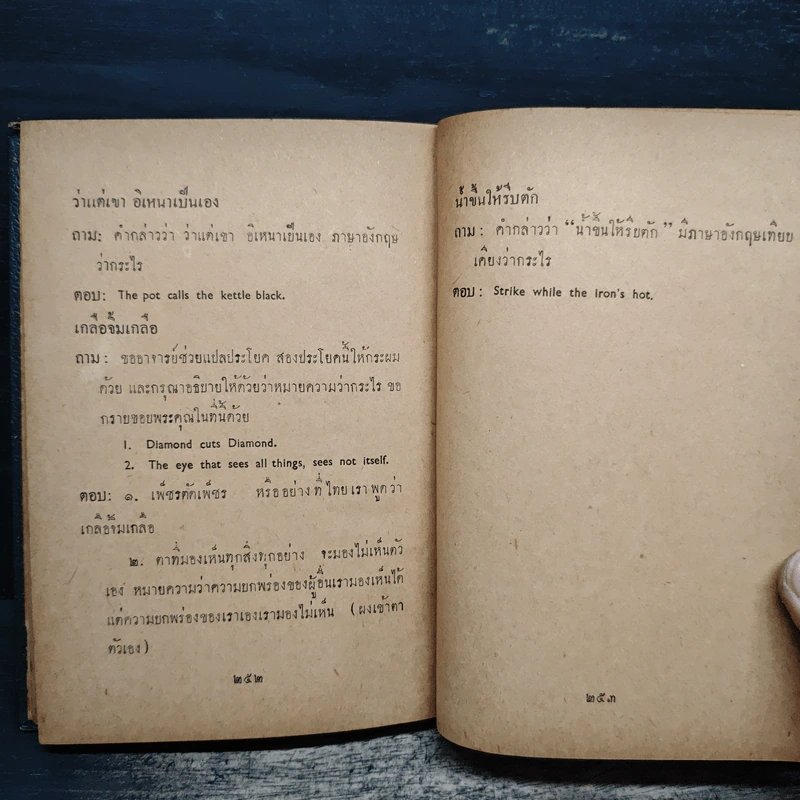 ว่าแต่เขา อิเหนาเป็นเอง
ถาม: คำกล่าวว่า ว่าแต่เขา อิเหนาเป็นเอง ภาษาอังกฤษ
ว่ากระไร
ตอบ: The pot calls the kettle black.
เกลือจิ้มเกลือ
ถาม: ขออาจารย์ช่วยแปลประโยค สองประโยคนี้ให้กระผม
ด้วย และกรุณาอธิบายให้ด้วยว่าหมายความว่ากระไร ขอ
กรายขอบพระคุณในที่นี้ด้วย
1. Diamond cuts Diamond.
2. The eye that sees all things, sees not itself.
ตอบ: ๑. เพ็ชรตัดเพ็ชร หรืออย่างที่ไทยเราพูดว่า
เกลือจิ้มเกลือ
๒. ตาที่มองเห็นทุกสิ่งทุกอย่าง จะมองไม่เห็นตัว
เอง หมายความว่าความยกพร่องของผู้อื่นเรามองเห็นได้
แต่ความยกพร่องของเราเองเรามองไม่เห็น (ผงเข้าตา
ตัวเอง)
๒๕๒
น้ำขึ้นให้รีบตัก
ถาม: คำกล่าวว่า “น้ำขึ้นให้รีบตัก” มีภาษาอังกฤษเทียบ
เคียงว่ากระไร
ตอบ: Strike while the iron's hot.
๒๕๓